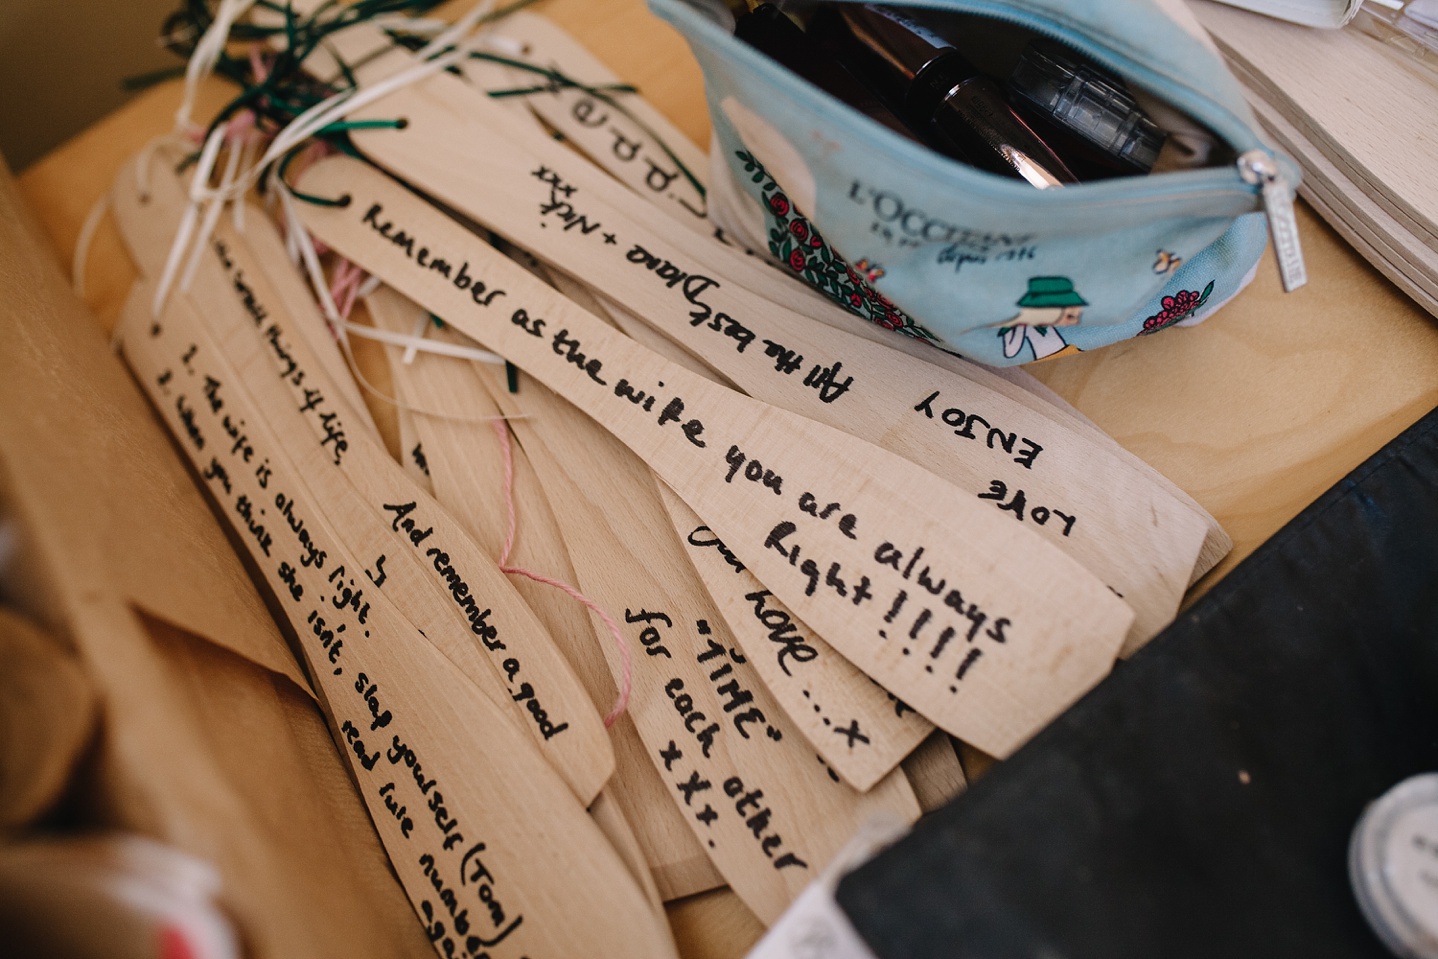 Remember as the wife you are always
Right!!!!
LOVE
ENJOY
All the best
Diana + Nick
xxx
L'OCCITANE
depuis 1976
small things of life,
And remember a good
1. The wife is always right.
2. When you think she isn't, slap yourself (Tom)
read rule number
again
"TIME"
for each other
xxx.
Our LOVE...x